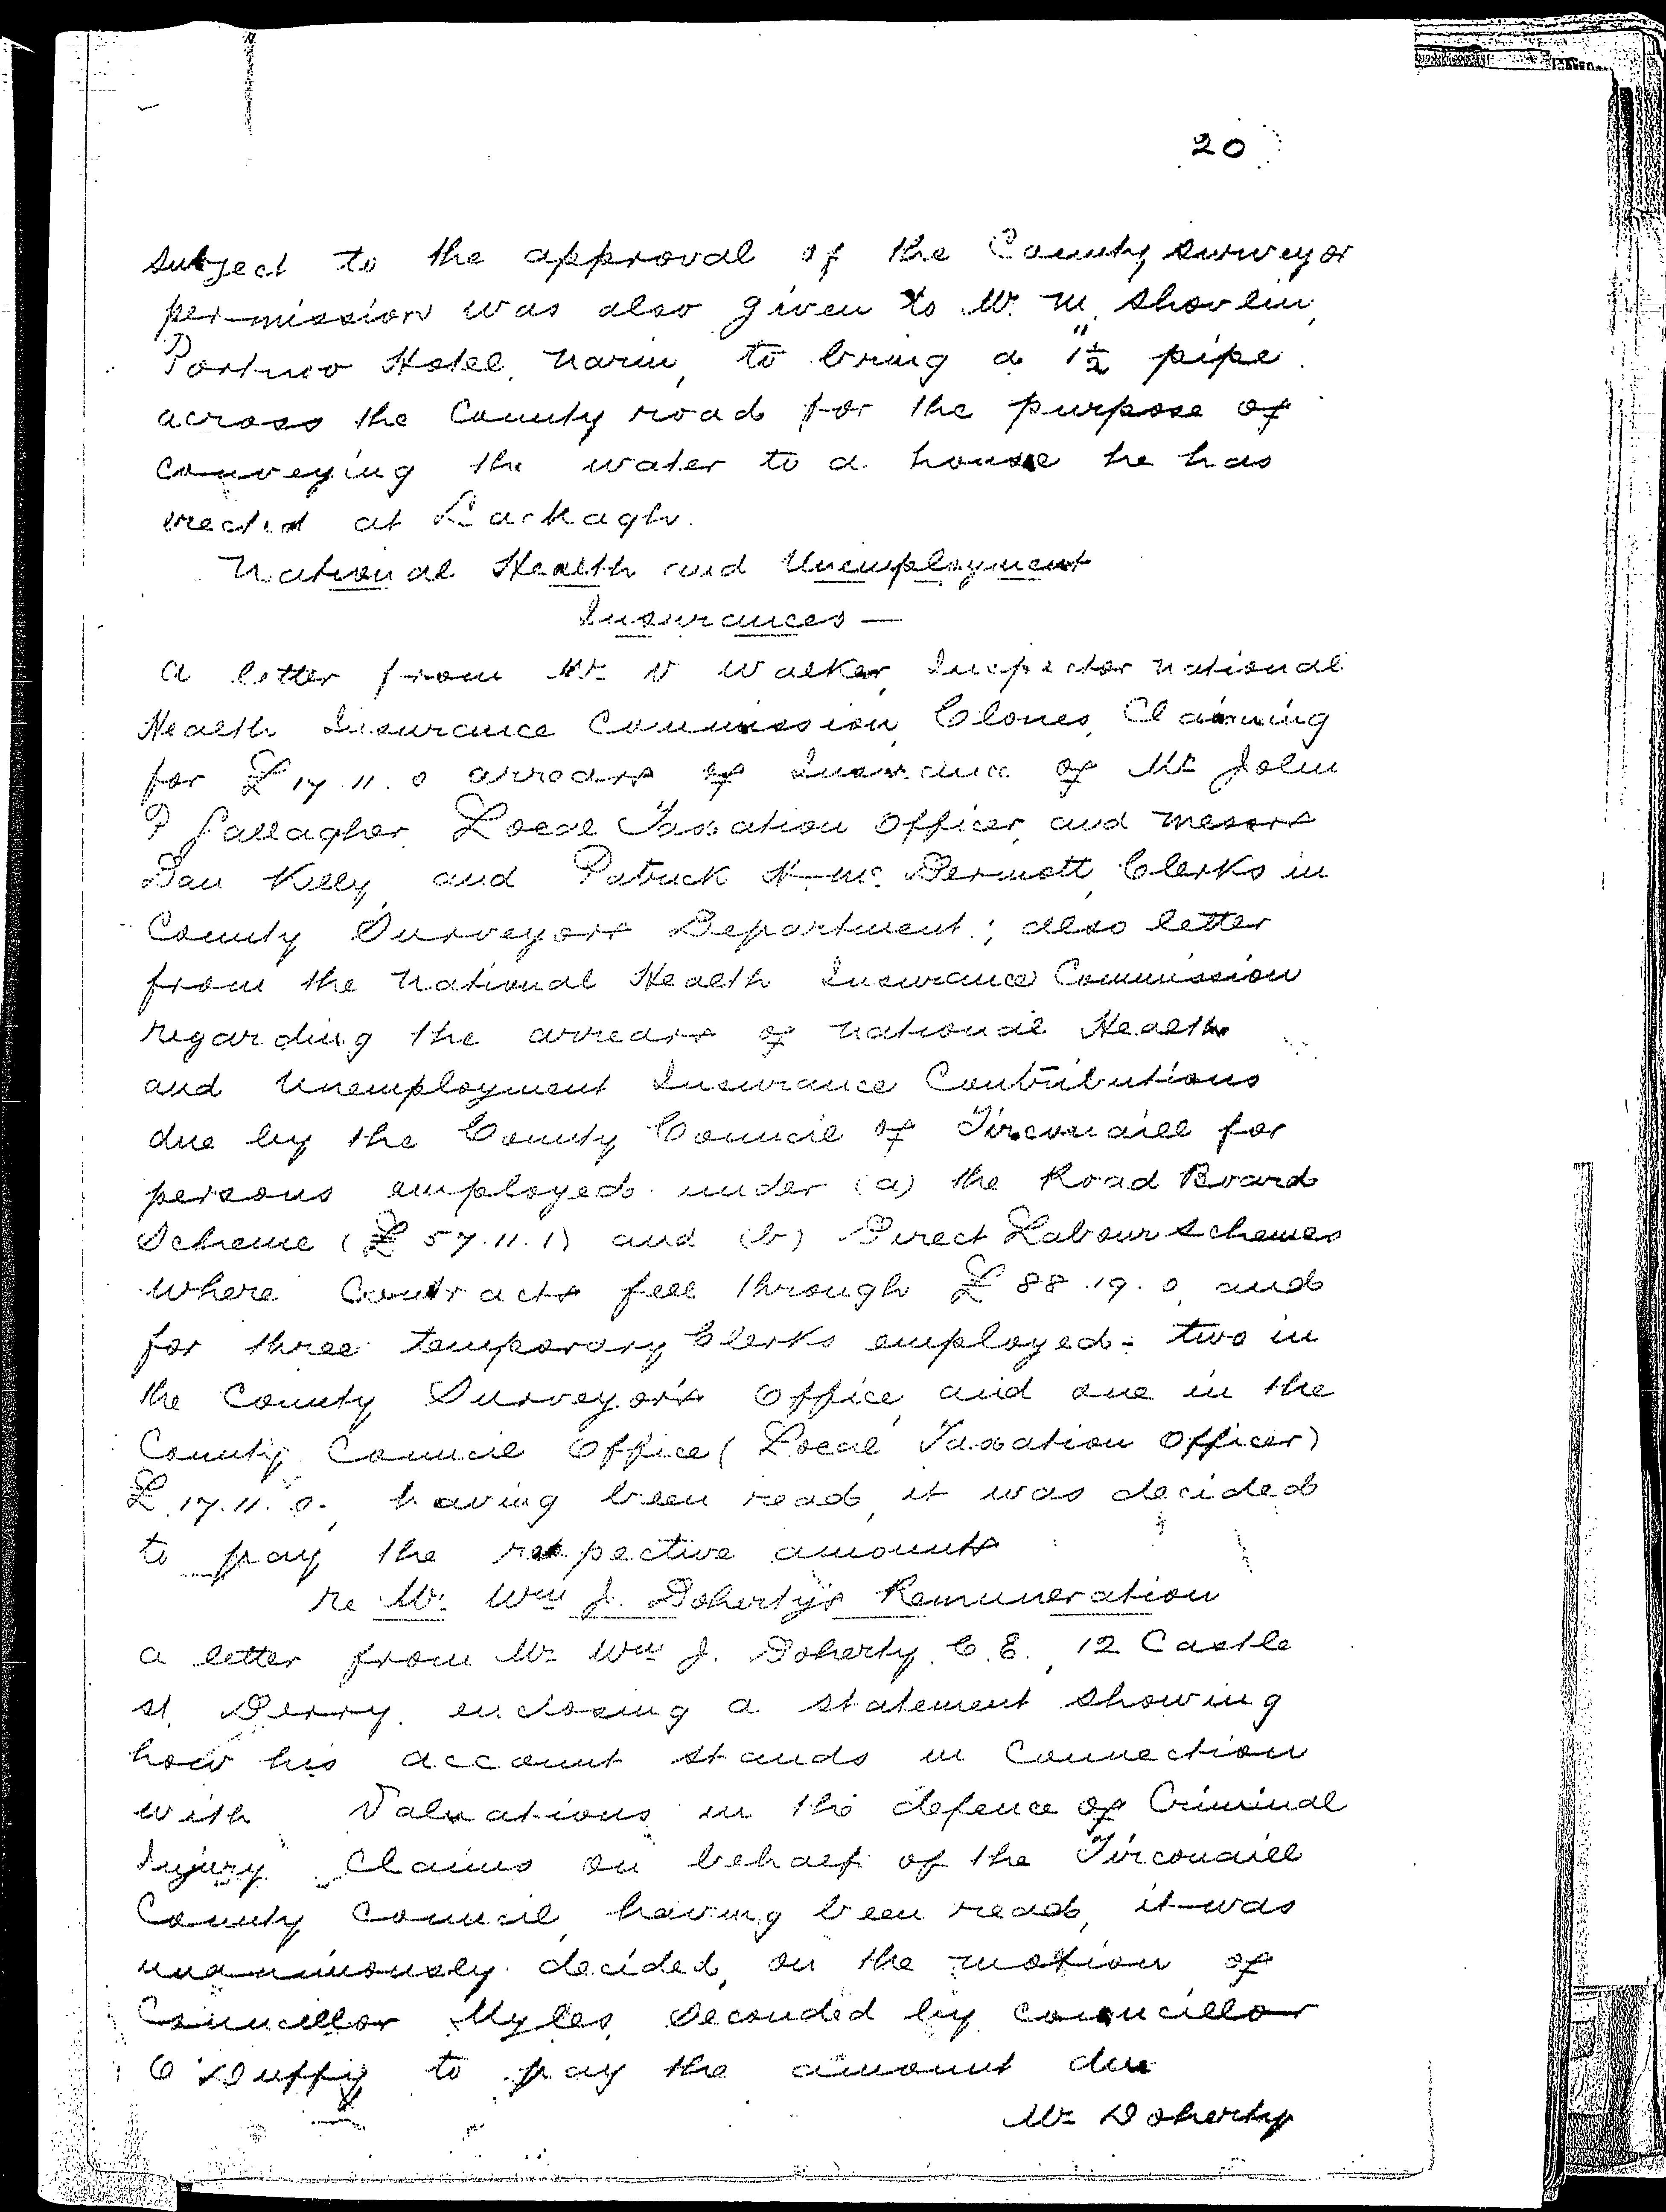 20
subject to the approval of the County Surveyor
permission was also given to Mr. M. Shovlin,
Portnoo Hotel, Narin, to bring a 1½" pipe
across the County road for the purpose of
conveying the water to a house he has
erected at Lackagh.
National Health and Unemployment
Insurances —
A letter from Mr. V Walker, Inspector National
Health Insurance Commission, Clones, Claiming
for £17.11.0 arrears of Insurance of Mr John
P Gallagher, Local Taxation Officer, and Messrs
Dan Kelly, and Patrick H. McDermott, Clerks in
County Surveyors Department; also letter
from the National Health Insurance Commission
regarding the arrears of National Health
and Unemployment Insurance Contributions
due by the County Council of Tirconaill for
persons employed under (a) the Road Board
Scheme (£57.11.1) and (b) Direct Labour Schemes
where Contracts fell through £88.19.0, and
for three temporary Clerks employed - two in
the County Surveyor's Office, and one in the
County Council Office (Local Taxation Officer)
£17.11.0., having been read, it was decided
to pay the respective amounts
re Mr. Wm J. Doherty's Remuneration
A letter from Mr. Wm J. Doherty, C.E., 12 Castle
St. Derry, enclosing a statement showing
how his account stands in Connection
with Valuations in the defence of Criminal
Injury Claims on behalf of the Tirconaill
County Council, having been read, it was
unanimously decided, on the motion of
Councillor Myles, seconded by Councillor
O'Duffy to pay the amount due
Mr Doherty